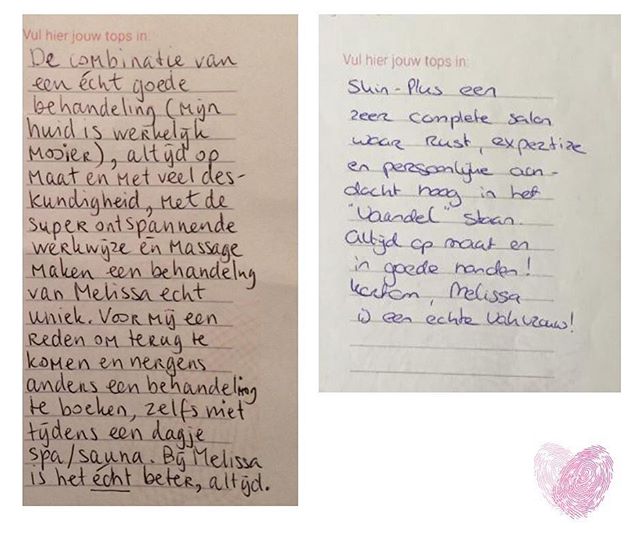 Vul hier jouw tops in:
De combinatie van
een écht goede
behandeling (mijn
huid is werkelijk
mooier), altijd op
maat en met veel des-
kundigheid, met de
super ontspannende
werkwijze én massage
maken een behandeling
van Melissa echt
uniek. Voor mij een
reden om terug te
komen en nergens
anders een behandeling
te boeken, zelfs niet
tijdens een dagje
spa/sauna. Bij Melissa
is het écht beter, altijd.
Vul hier jouw tops in:
Skin-Plus een
zeer complete salon
waar rust, expertize
en persoonlijke aan-
dacht hoog in het
"Vaandel" staan.
Altijd op maat en
in goede handen!
kortom, Melissa
is een echte vakvrouw!